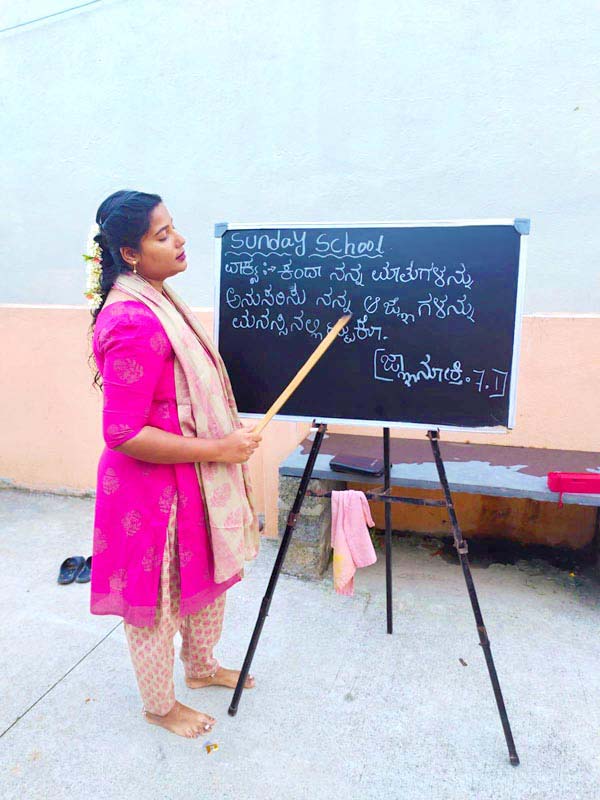 Sunday School
ವಾಕ್ಯ :- ಕಂದಾ ನನ್ನ ಮಾತುಗಳನ್ನು
ಅನುಸರಿಸು ನನ್ನ ಆಜ್ಞೆಗಳನ್ನು
ಮನಸ್ಸಿನಲ್ಲಿ
[ಜ್ಞಾನೋಕ್ತಿ. 7.1]